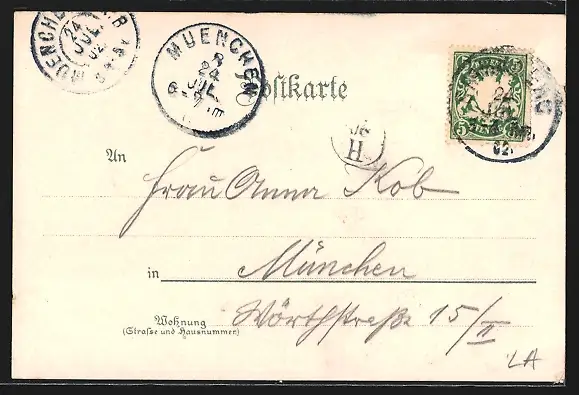 MUENCHEN
24
JUL
02
MUENCHEN
8
24
JUL
Postkarte
BAYERN
5
5
02
H.
An
Frau Anna Kob
in München
Wohnung
(Strasse und Hausnummer)
Wörthstraße 15/II
LA